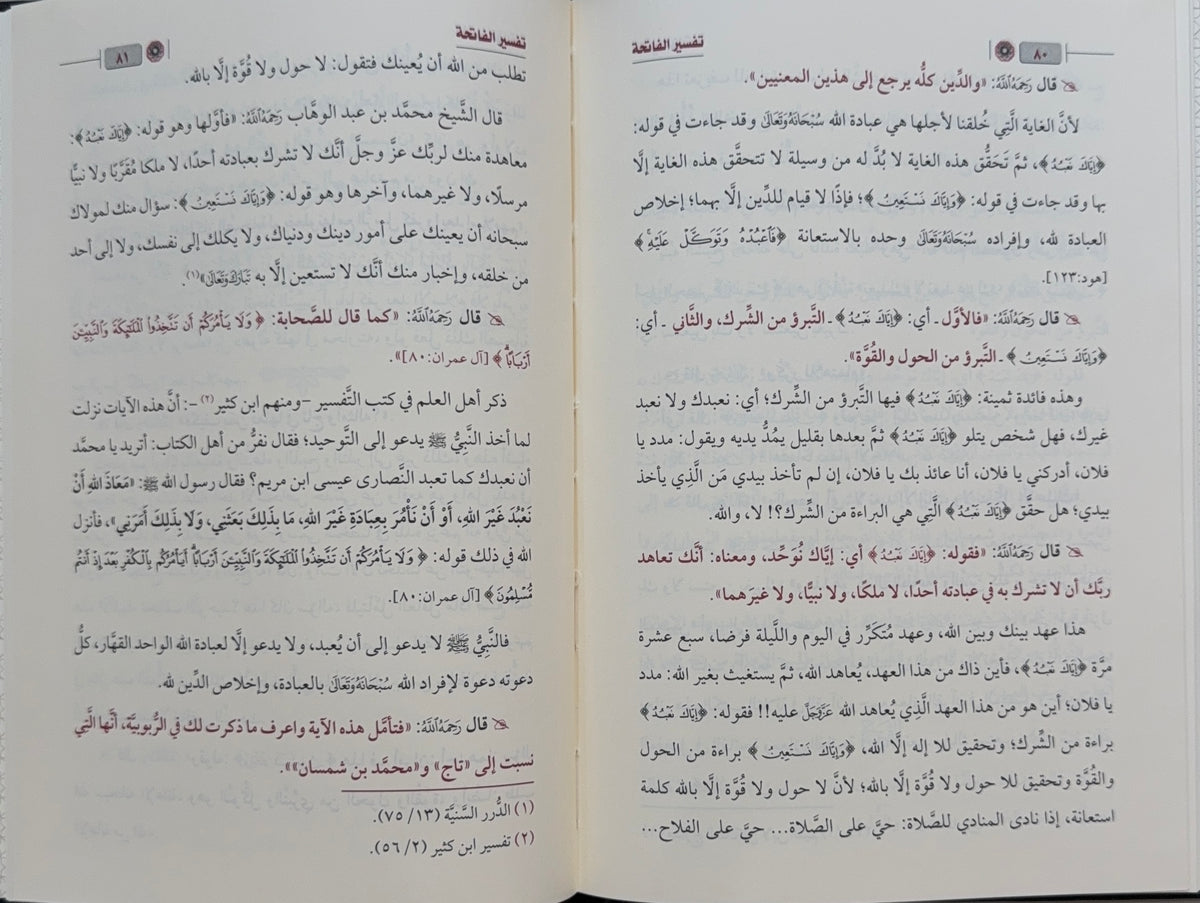 تفسير الفاتحة
٨٠
قال رَحِمَهُ ٱللَّهُ: «والدِّين كلُّه يرجع إلى هذين المعنيين».
لأنَّ الغاية الَّتِي خُلقنا لأجلها هي عبادة الله سُبْحَانَهُ وَتَعَالَى وقد جاءت في قوله:
﴿إِيَّاكَ نَعْبُدُ﴾، ثمَّ تَحَقُّق هذه الغاية لا بُدَّ له من وسيلة لا تتحقَّق هذه الغاية إلَّا
بها وقد جاءت في قوله: ﴿وَإِيَّاكَ نَسْتَعِينُ﴾؛ فإذًا لا قيام للدِّين إلَّا بهما؛ إخلاص
العبادة لله، وإفراده سُبْحَانَهُ وَتَعَالَى وحده بالاستعانة ﴿فَٱعْبُدْهُ وَتَوَكَّلْ عَلَيْهِ﴾
[هود:١٢٣].
قال رَحِمَهُ ٱللَّهُ: «فالأوَّل ـ أي: ﴿إِيَّاكَ نَعْبُدُ﴾ ـ التَّبرؤ من الشِّرك، والثَّاني ـ أي:
﴿وَإِيَّاكَ نَسْتَعِينُ﴾ ـ التَّبرؤ من الحول والقُوَّة».
وهذه فائدة ثمينة: ﴿إِيَّاكَ نَعْبُدُ﴾ فيها التَّبرؤ من الشِّرك؛ أي: نعبدك ولا نعبد
غيرك، فهل شخص يتلو ﴿إِيَّاكَ نَعْبُدُ﴾ ثمَّ بعدها بقليل يمُدُّ يديه ويقول: مدد يا
فلان، أدركني يا فلان، أنا عائذ بك يا فلان، إن لم تأخذ بيدي مَن الَّذِي يأخذ
بيدي؛ هل حقَّق ﴿إِيَّاكَ نَعْبُدُ﴾ الَّتِي هي البراءة من الشِّرك؟! لا، والله.
قال رَحِمَهُ ٱللَّهُ: «فقوله: ﴿إِيَّاكَ نَعْبُدُ﴾ أي: إيَّاك نُوَحِّد، ومعناه: أنَّك تعاهد
ربَّك أن لا تشرك به في عبادته أحدًا، لا ملكًا، ولا نبيًّا، ولا غيرَهما».
هذا عهد بينك وبين الله، وعهد مُتَكَرِّر في اليوم واللَّيلة فرضا، سبع عشرة
مرَّة ﴿إِيَّاكَ نَعْبُدُ﴾، فأين ذاك من هذا العهد، يُعاهد الله، ثمَّ يستغيث بغير الله: مدد
يا فلان؛ أين هو من هذا العهد الَّذِي يُعاهد الله عَزَّوَجَلَّ عليه!! فقوله: ﴿إِيَّاكَ نَعْبُدُ﴾
براءة من الشِّرك؛ وتحقيق للا إله إلَّا الله، ﴿وَإِيَّاكَ نَسْتَعِينُ﴾ براءة من الحول
والقُوَّة وتحقيق للا حول ولا قُوَّة إلَّا بالله؛ لأنَّ لا حول ولا قُوَّة إلَّا بالله كلمة
استعانة، إذا نادى المنادي للصَّلاة: حيَّ على الصَّلاة... حيَّ على الفلاح...
تفسير الفاتحة
٨١
تطلب من الله أن يُعينك فتقول: لا حول ولا قُوَّة إلَّا بالله.
قال الشَّيخ محمَّد بن عبد الوهَّاب رَحِمَهُ ٱللَّهُ: «فأوَّلها وهو قوله: ﴿إِيَّاكَ نَعْبُدُ﴾:
معاهدة منك لربِّك عزَّ وجلَّ أنَّك لا تشرك بعبادته أحدًا، لا ملكا مُقَرَّبًا ولا نبيًّا
مرسلًا، ولا غيرهما، وآخرها وهو قوله: ﴿وَإِيَّاكَ نَسْتَعِينُ﴾: سؤال منك لمولاك
سبحانه أن يعينك على أمور دينك ودنياك، ولا يكلك إلى نفسك، ولا إلى أحد
من خلقه، وإخبار منك أنَّك لا تستعين إلَّا به تَبَارَكَ وَتَعَالَى»(١).
قال رَحِمَهُ ٱللَّهُ: «كما قال للصَّحابة: ﴿وَلَا يَأْمُرَكُمْ أَن تَتَّخِذُوا۟ ٱلْمَلَـٰٓئِكَةَ وَٱلنَّبِيِّـۧنَ
أَرْبَابًا﴾ [آل عمران:٨٠]».
ذكر أهل العلم في كتب التَّفسير -ومنهم ابن كثير (٢) -: أنَّ هذه الآيات نزلت
لما أخذ النَّبِيُّ ﷺ يدعو إلى التَّوحيد؛ فقال نفرٌ من أهل الكتاب: أتريد يا محمَّد
أن نعبدك كما تعبد النَّصارى عيسى ابن مريم؟ فقال رسول الله ﷺ: «مَعَاذَ اللهِ أَنْ
نَعْبُدَ غَيْرَ اللهِ، أَوْ أَنْ نَأْمُرَ بِعِبَادَةِ غَيْرِ اللهِ، مَا بِذَلِكَ بَعَثَنِي، وَلَا بِذَلِكَ أَمَرَنِي»، فأنزل
الله في ذلك قوله: ﴿وَلَا يَأْمُرَكُمْ أَن تَتَّخِذُوا۟ ٱلْمَلَـٰٓئِكَةَ وَٱلنَّبِيِّـۧنَ أَرْبَابًا أَيَأْمُرُكُم بِٱلْكُفْرِ بَعْدَ إِذْ أَنتُم
مُّسْلِمُونَ﴾ [آل عمران:٨٠].
فالنَّبِيُّ ﷺ لا يدعو إلى أن يُعبد، ولا يدعو إلَّا لعبادة الله الواحد القهَّار، كلُّ
دعوته دعوة لإفراد الله سُبْحَانَهُ وَتَعَالَى بالعبادة، وإخلاص الدِّين لله.
قال رَحِمَهُ ٱللَّهُ: «فتأمَّل هذه الآية واعرف ما ذكرت لك في الرُّبوبيَّة، أنَّها الَّتِي
نسبت إلى «تاج» و«محمَّد بن شمسان»».
(١) الدُّرر السَّنيَّة (١٣/ ٧٥).
(٢) تفسير ابن كثير (٢/ ٥٦).